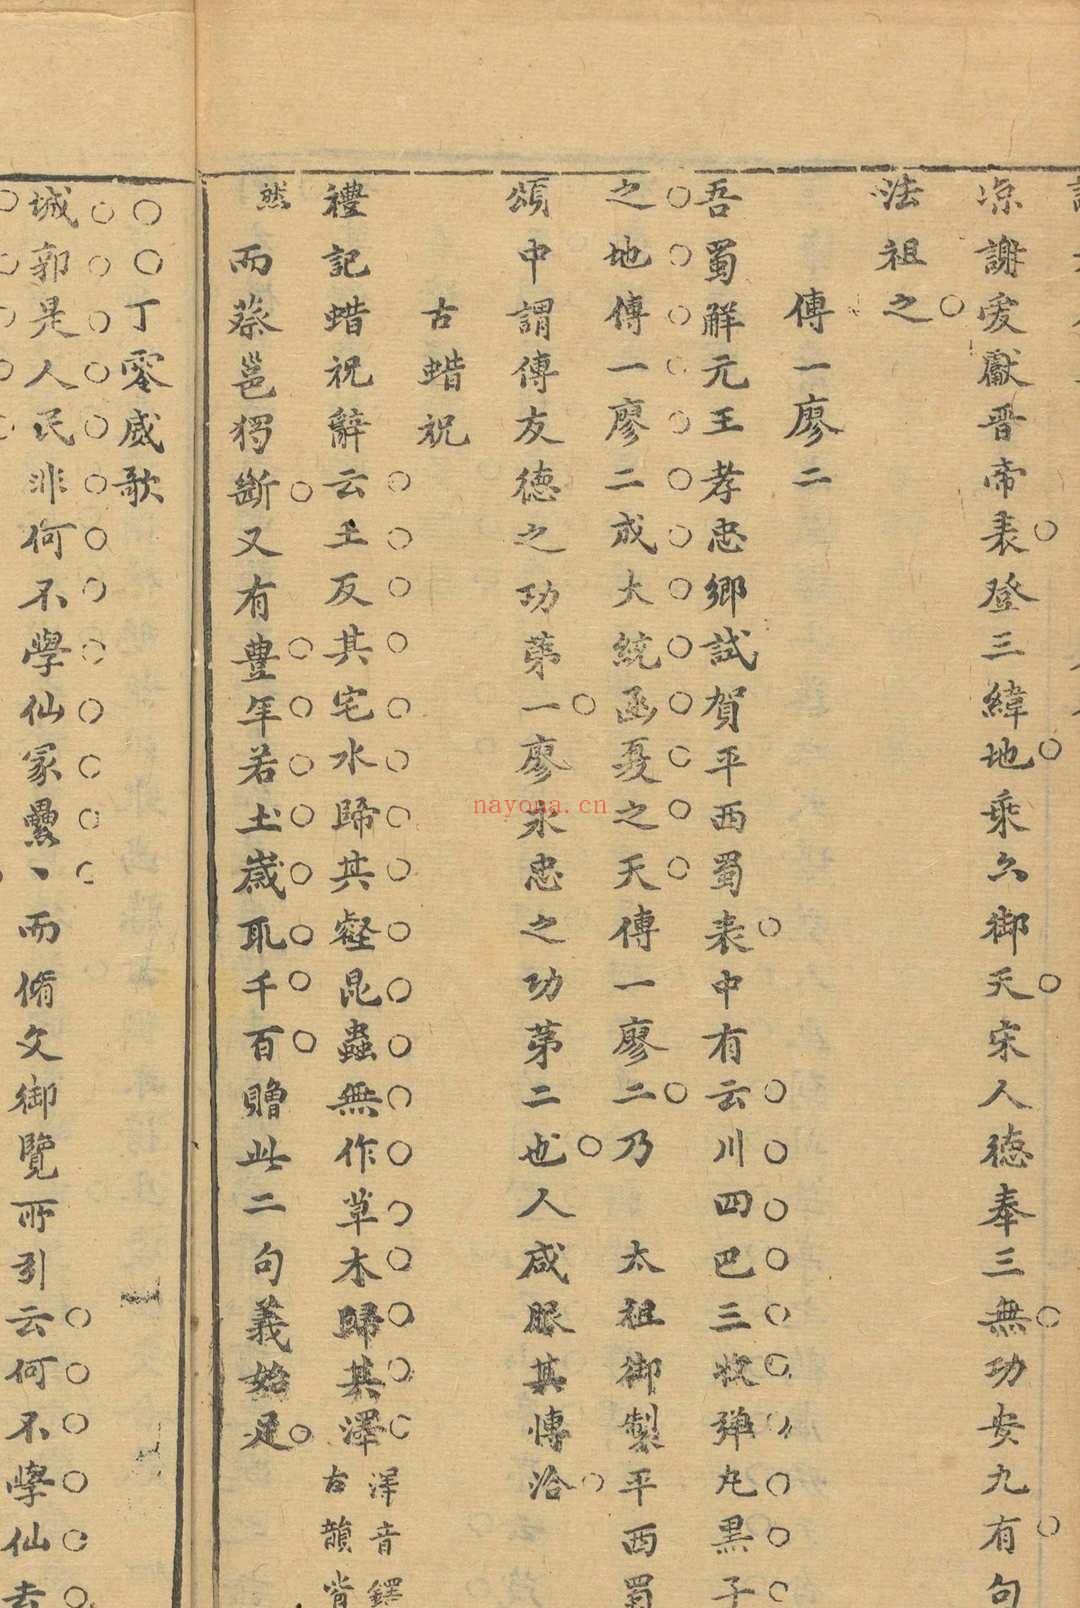 凉謝爰獻晋帝表登三緯地乘六御天宋人德奉三無功安九有句
法祖之
傳一廖二
吾蜀解元王孝忠鄉試賀平西蜀表中有云川四巴三收彈丸黒子
之地傳一廖二成大統函夏之天傳一廖二乃 太祖御製平西蜀
頌中謂傳友德之功苐一廖永忠之功苐二也人咸服其愽洽
古蜡祝
禮記蜡祝辭云土反其宅水歸其壑昆蟲無作草木歸其澤澤音鐸古韻皆
然而蔡邕獨斷又有豊年若土歳取千百贈此二句義始足
丁零威歌
城郭是人民非何不學仙冡纍丶而脩文御覽所引云何不學仙去
nayona.cn